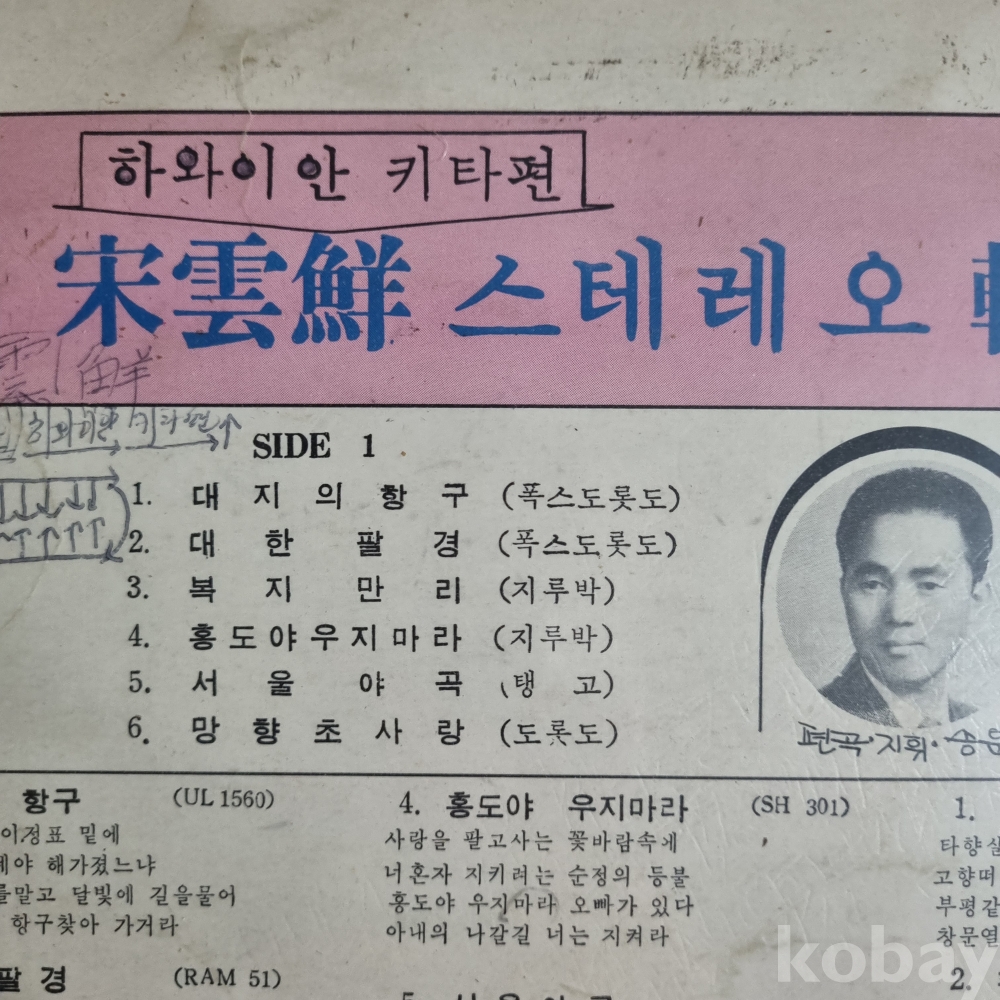 하와이안 키타편
宋雲鮮 스테레오
雲 鮮
하와이안 키타편
SIDE 1
1. 대지의항구 (폭스도롯도)
2. 대한팔경 (폭스도롯도)
3. 복지만리 (지루박)
4. 홍도야우지마라 (지루박)
5. 서울야곡 (탱고)
6. 망향초사랑 (도롯도)
편곡·지휘·송운
항구 (UL 1560)
이정표 밑에
해가졌느냐
를말고 달빛에 길을물어
항구찾아 가거라
팔경 (RAM 51)
4. 홍도야 우지마라 (SH 301)
사랑을 팔고사는 꽃바람속에
너혼자 지키려는 순정의 등불
홍도야 우지마라 오빠가 있다
아내의 나갈길 너는 지켜라
1.
타향살
고향떠
부평같
창문열
2.
kobay